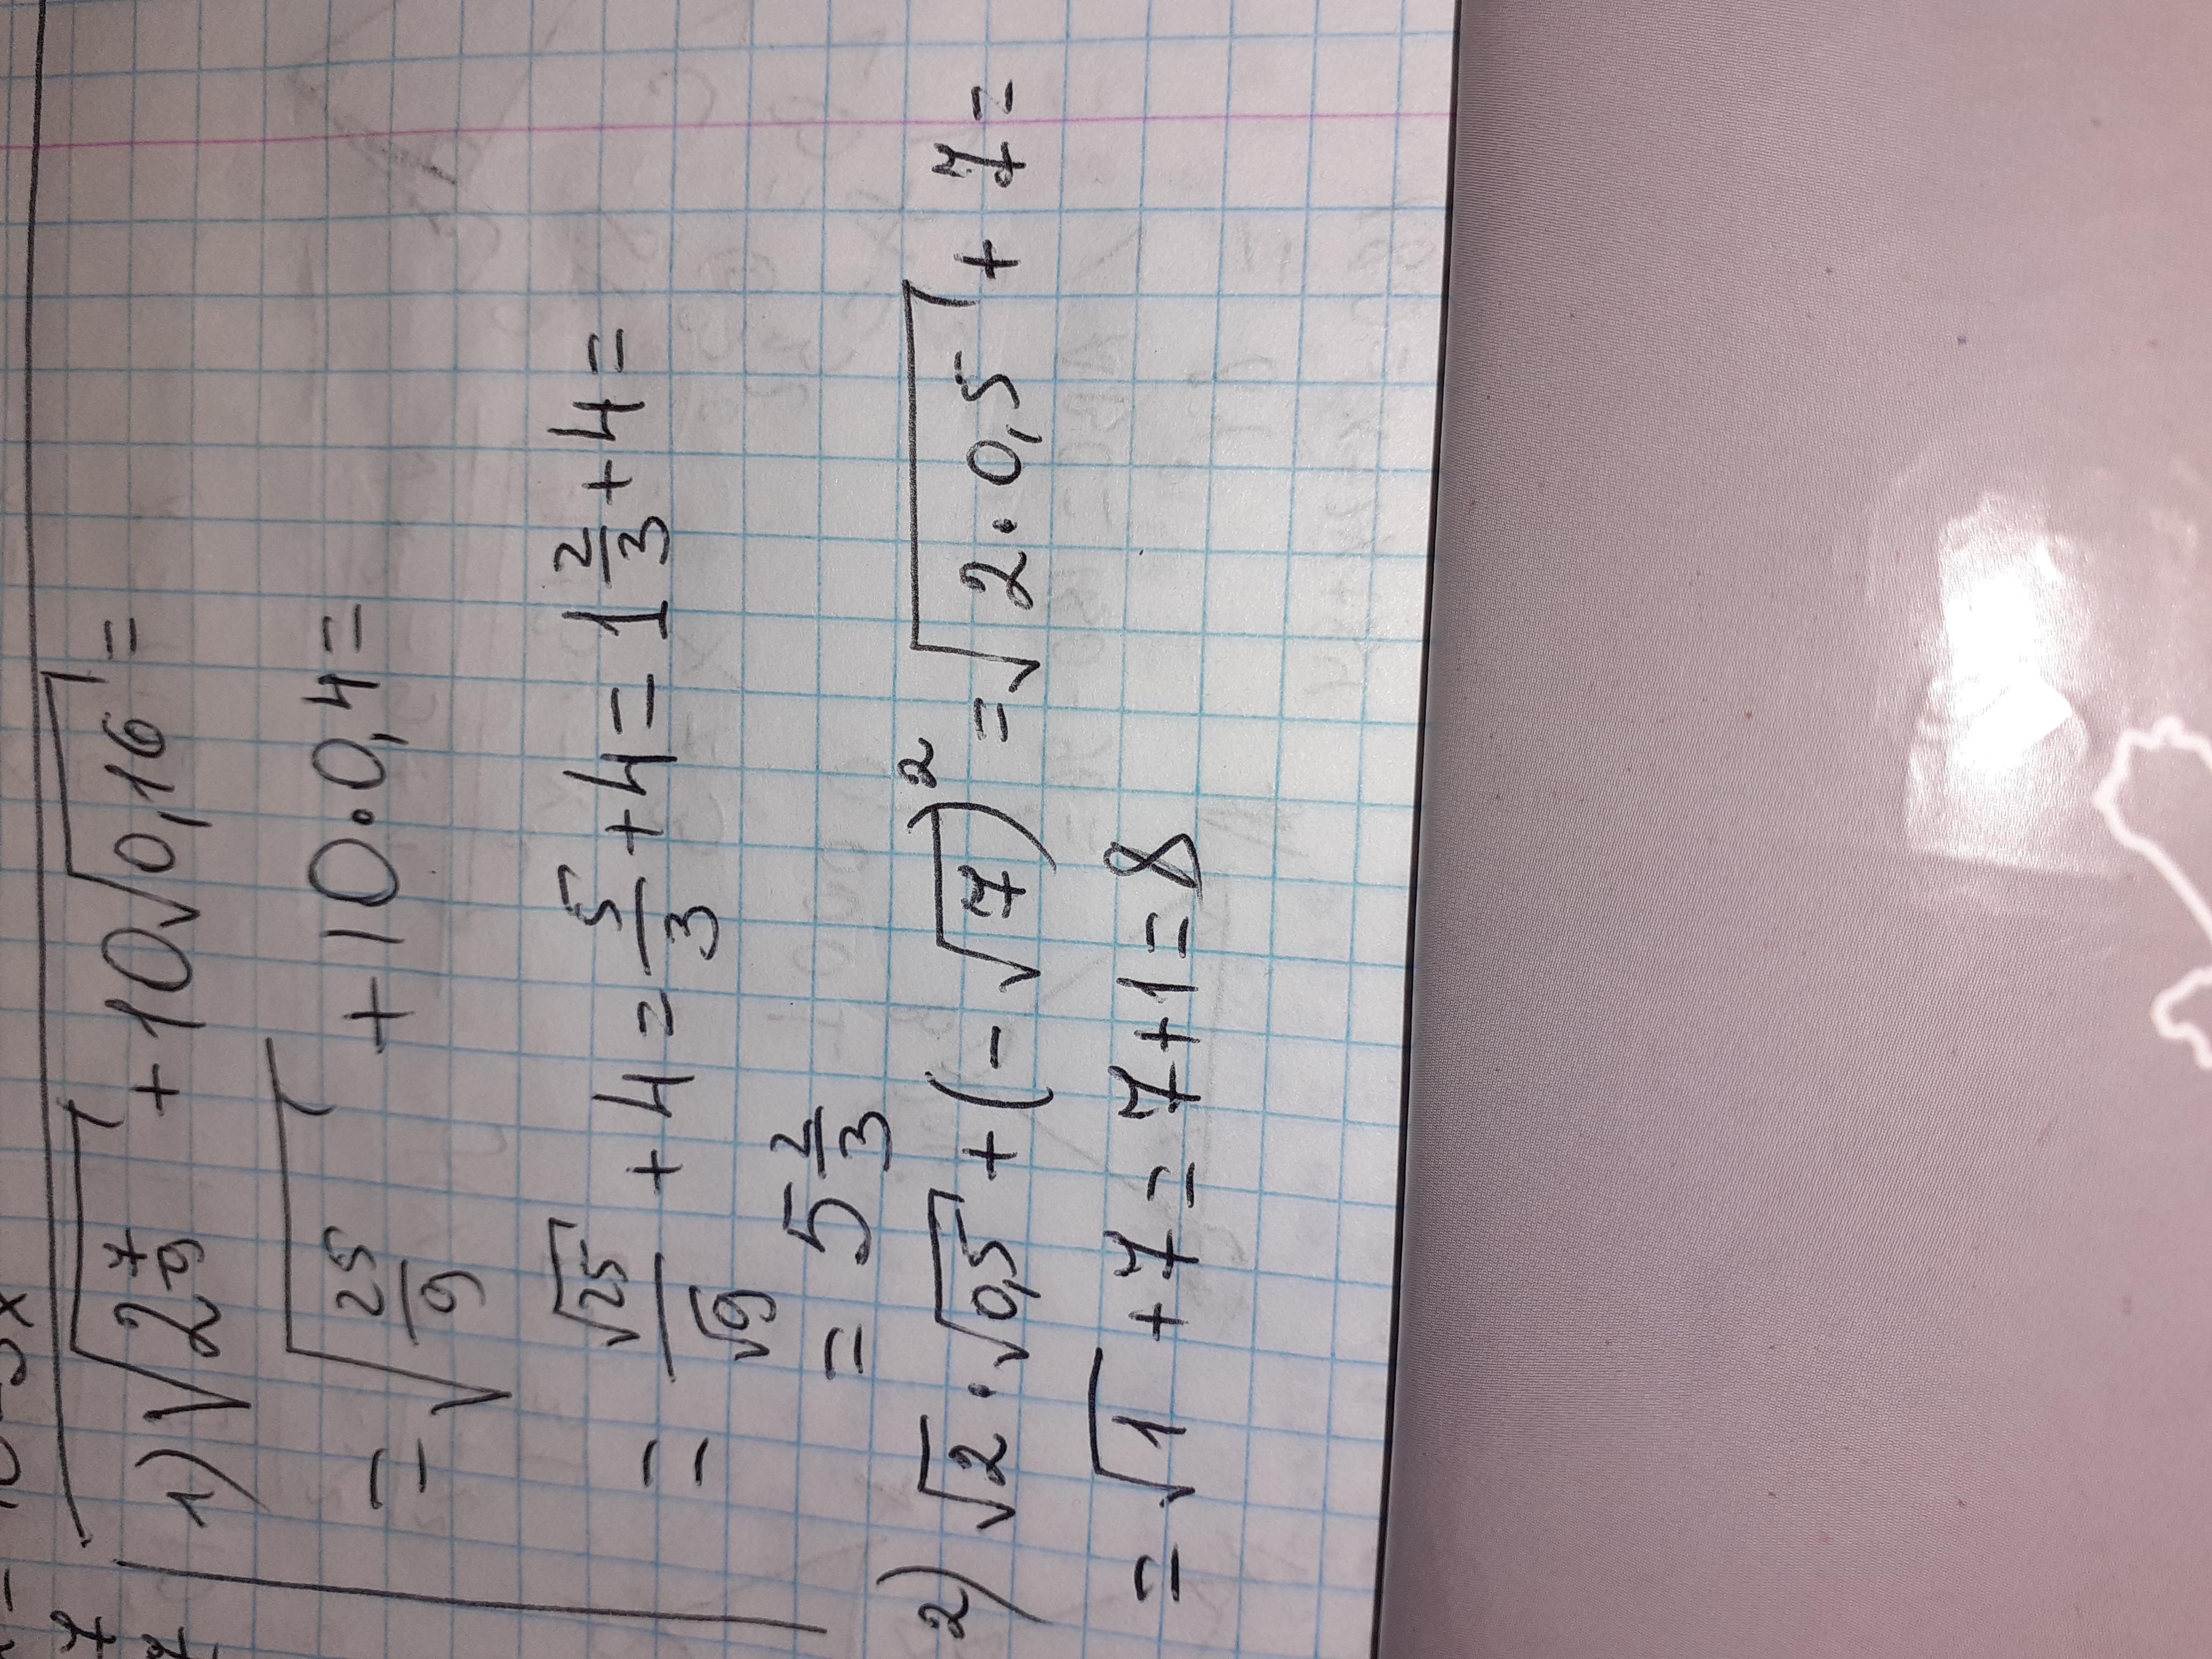 1) √(2 7/9) + 10√0,16 =
= √(25/9) + 10·0,4 =
= √25/√9 + 4 = 5/3 + 4 = 1 2/3 + 4 =
= 5 2/3
2) √2 · √0,5 + (-√7)² = √(2·0,5) + 7 =
= √1 + 7 = 7 + 1 = 8